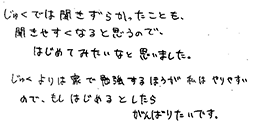 じゅくでは聞きずらかったことも、
聞きやすくなると思うので、
はじめてみたいなと思いました。
じゅくよりは家で勉強するほうが私はやりやすい
ので、もしはじめるとしたら
がんばりたいです。